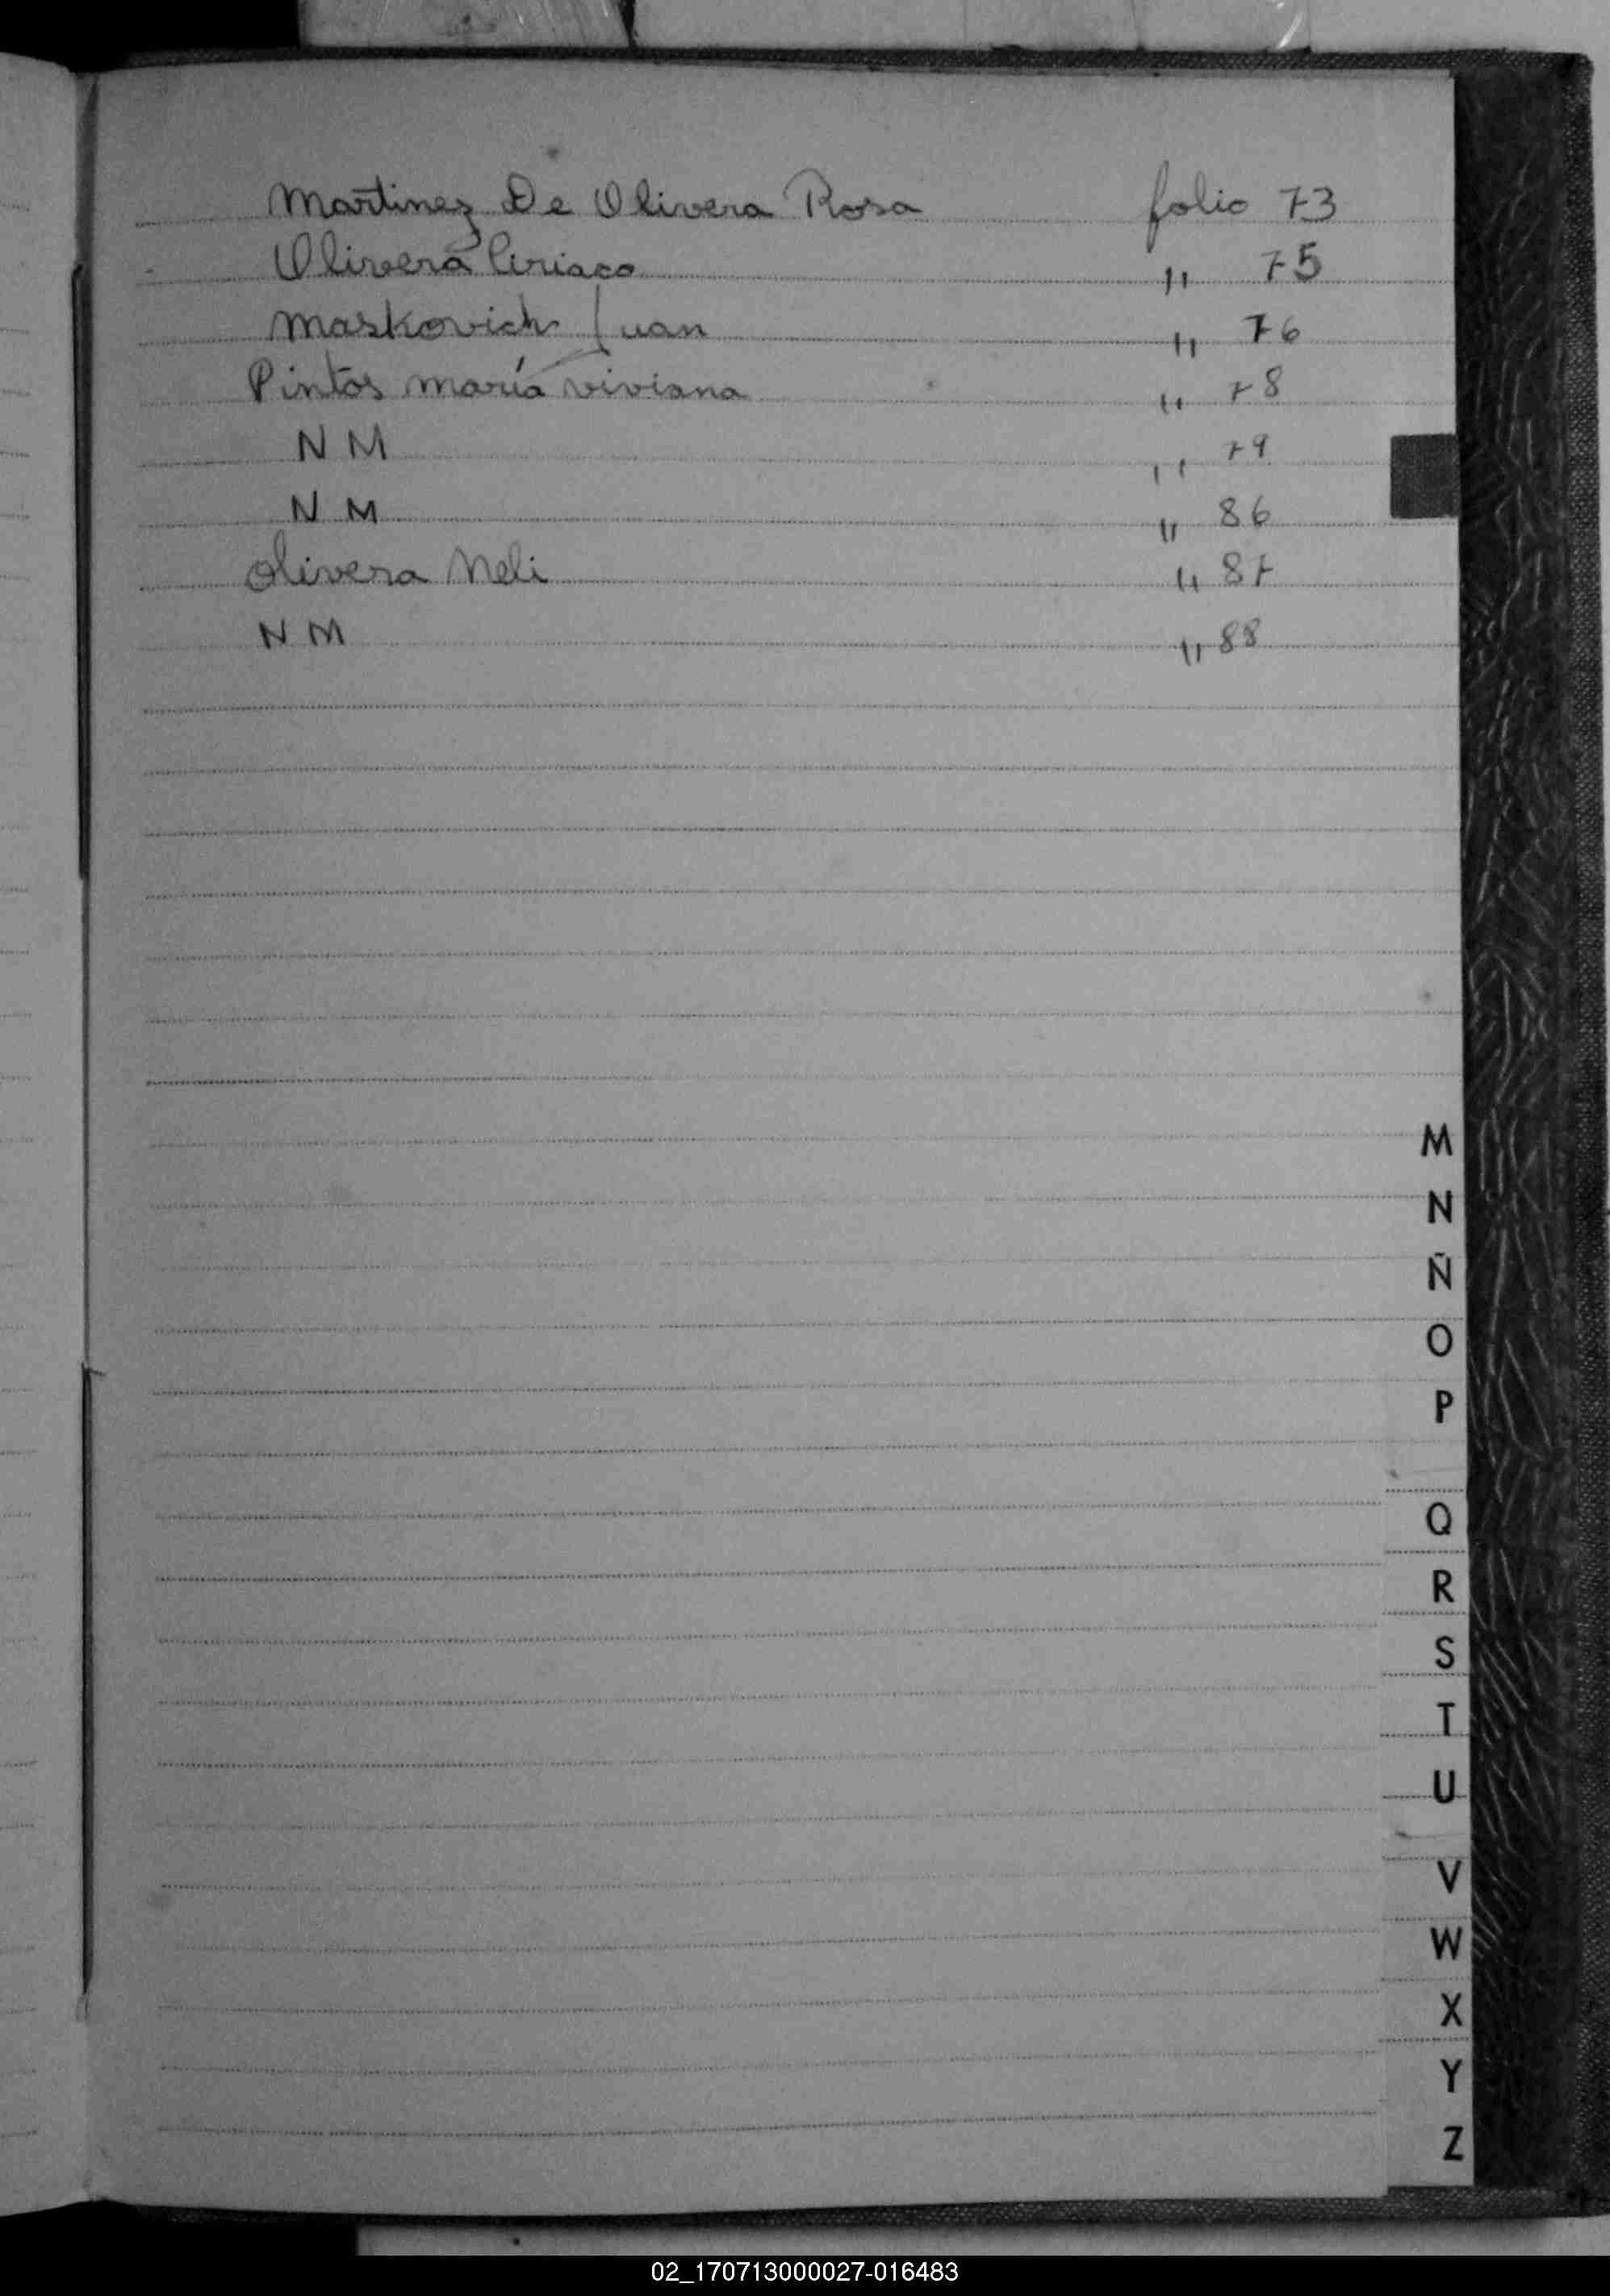 Martinez De Olivera Rosa folio 73
Olivera Ciriaco " 75
Maskovich Juan " 76
Pintos maría viviana " 78
N M " 79
N M " 86
Olivera Neli " 87
N M " 88
M
N
Ñ
O
P
Q
R
S
T
U
V
W
X
Y
Z
02_170713000027-016483